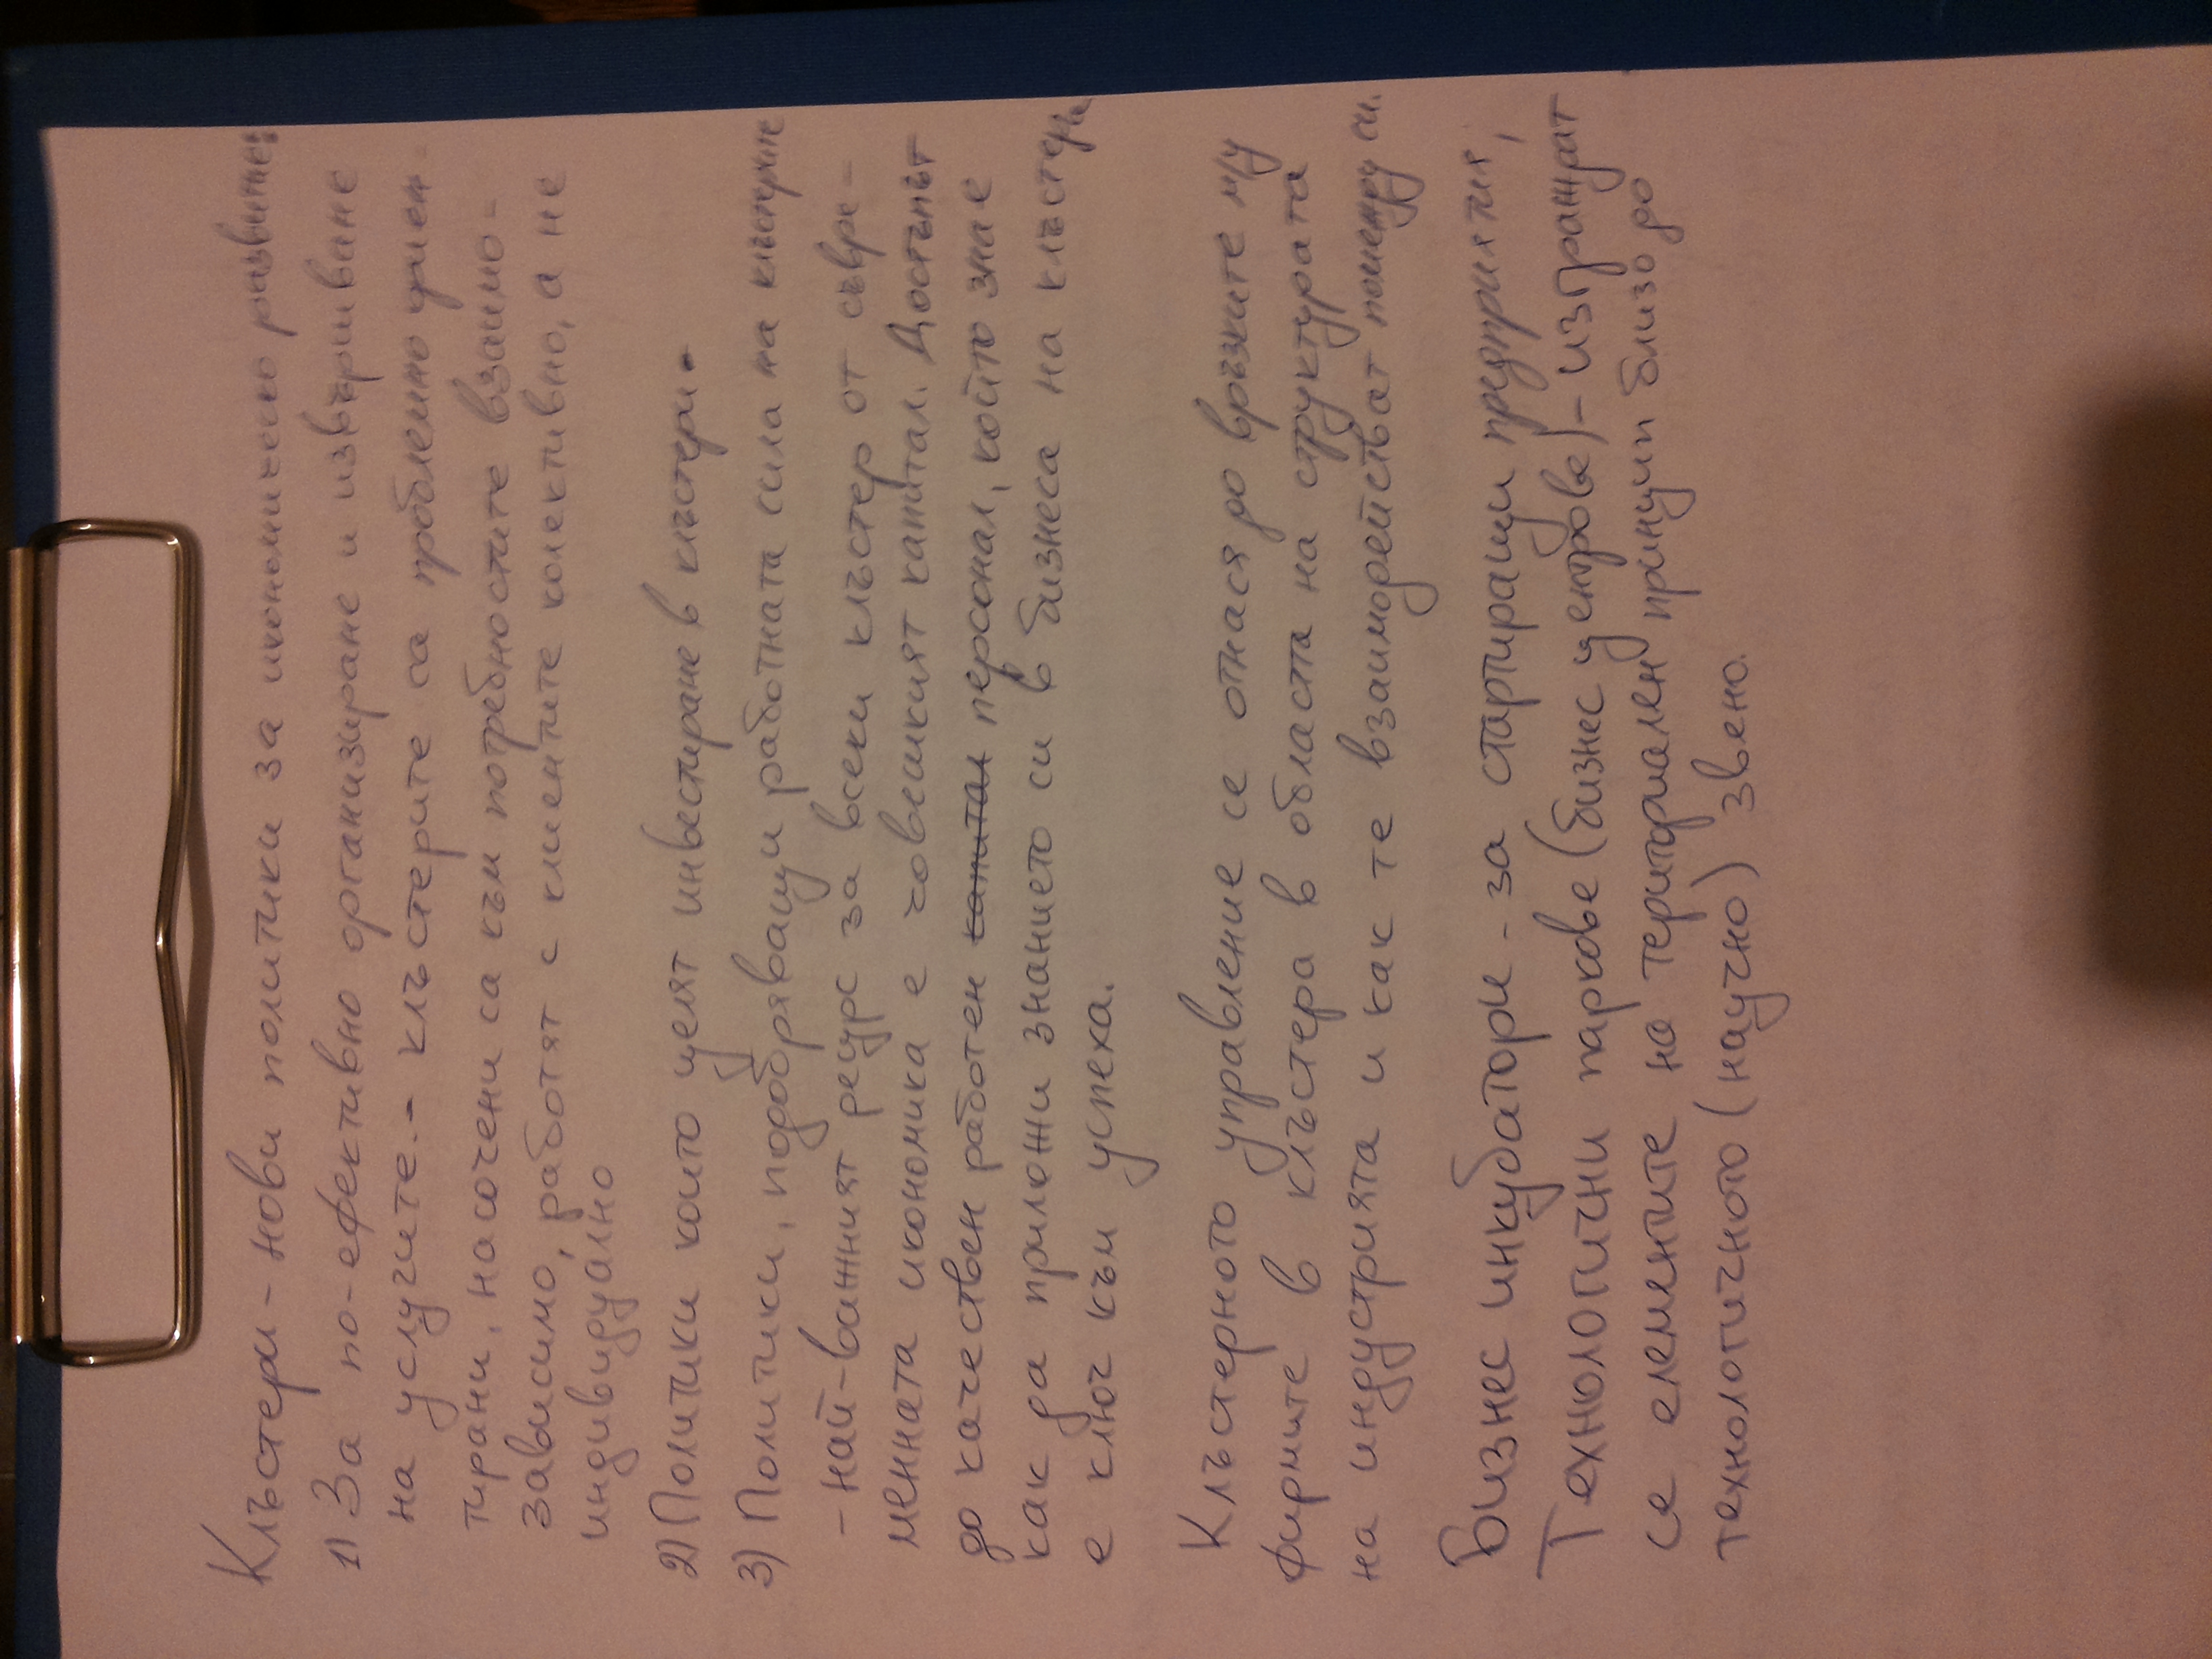 Клъстери - нови политики за икономическо развитие:
1) За по-ефективно организиране и извършване
на услугите. - клъстерите са проблемно ориен-
тирани, насочени са към потребностите взаимо-
зависимо, работят с клиентите колективно, а не
индивидуално
2) Политики които целят инвестиране в клъстери.
3) Политики, подобряващи работната сила на клъстерите
- най-важният ресурс за всеки клъстер от съвре-
менната икономика е човешкият капитал. Достъпът
до качествен работен капитал персонал, който знае
как да приложи знанието си в бизнеса на клъстера
е ключ към успеха.
Клъстерното управление се отнася до връзките м/у
фирмите в клъстера в областта на структурата
на индустрията и как те взаимодействат помежду си.
Бизнес инкубатори - за стартиращи предприятия,
Технологични паркове (бизнес центрове) - изграждат
се елементите на териториален принцип близо до
технологичното (научно) звено.